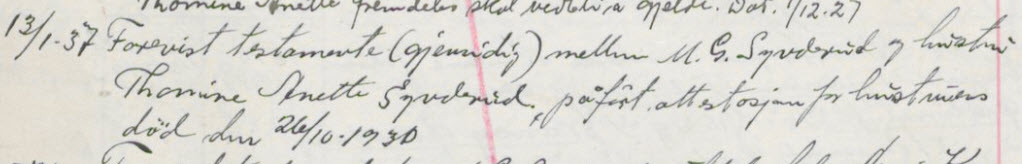 Thomine Anette fremdeles skal vedbli a gjelde. Dat. 1/12.27
13/1-37 Forevist testamente (gjensidig) mellem M. G. Syvderud og hustru
Thomine Anette Syvderud, påført attestasjon for hustruens
död den 26/10-1930